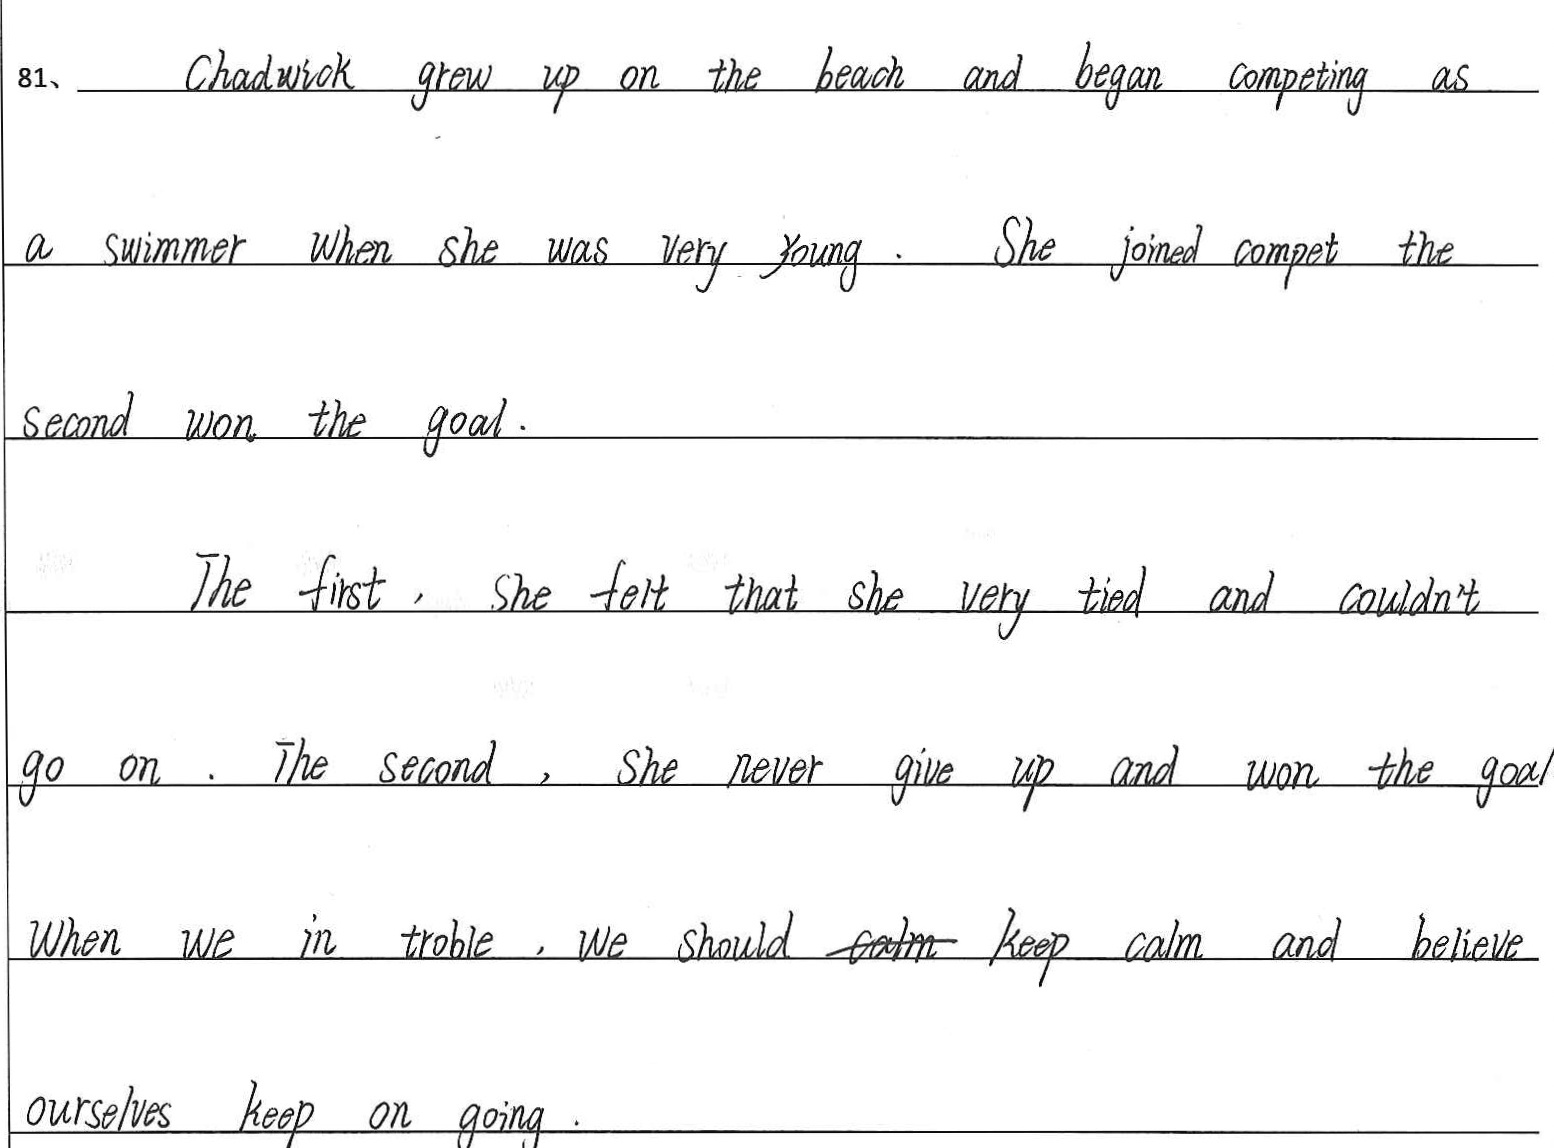 81、 Chadwick grew up on the beach and began competing as
a swimmer when she was very young. She joined compet the
second won the goal.
The first, she felt that she very tied and couldn't
go on. The second, she never give up and won the goal
When we in troble, we should calm keep calm and believe
ourselves keep on going.